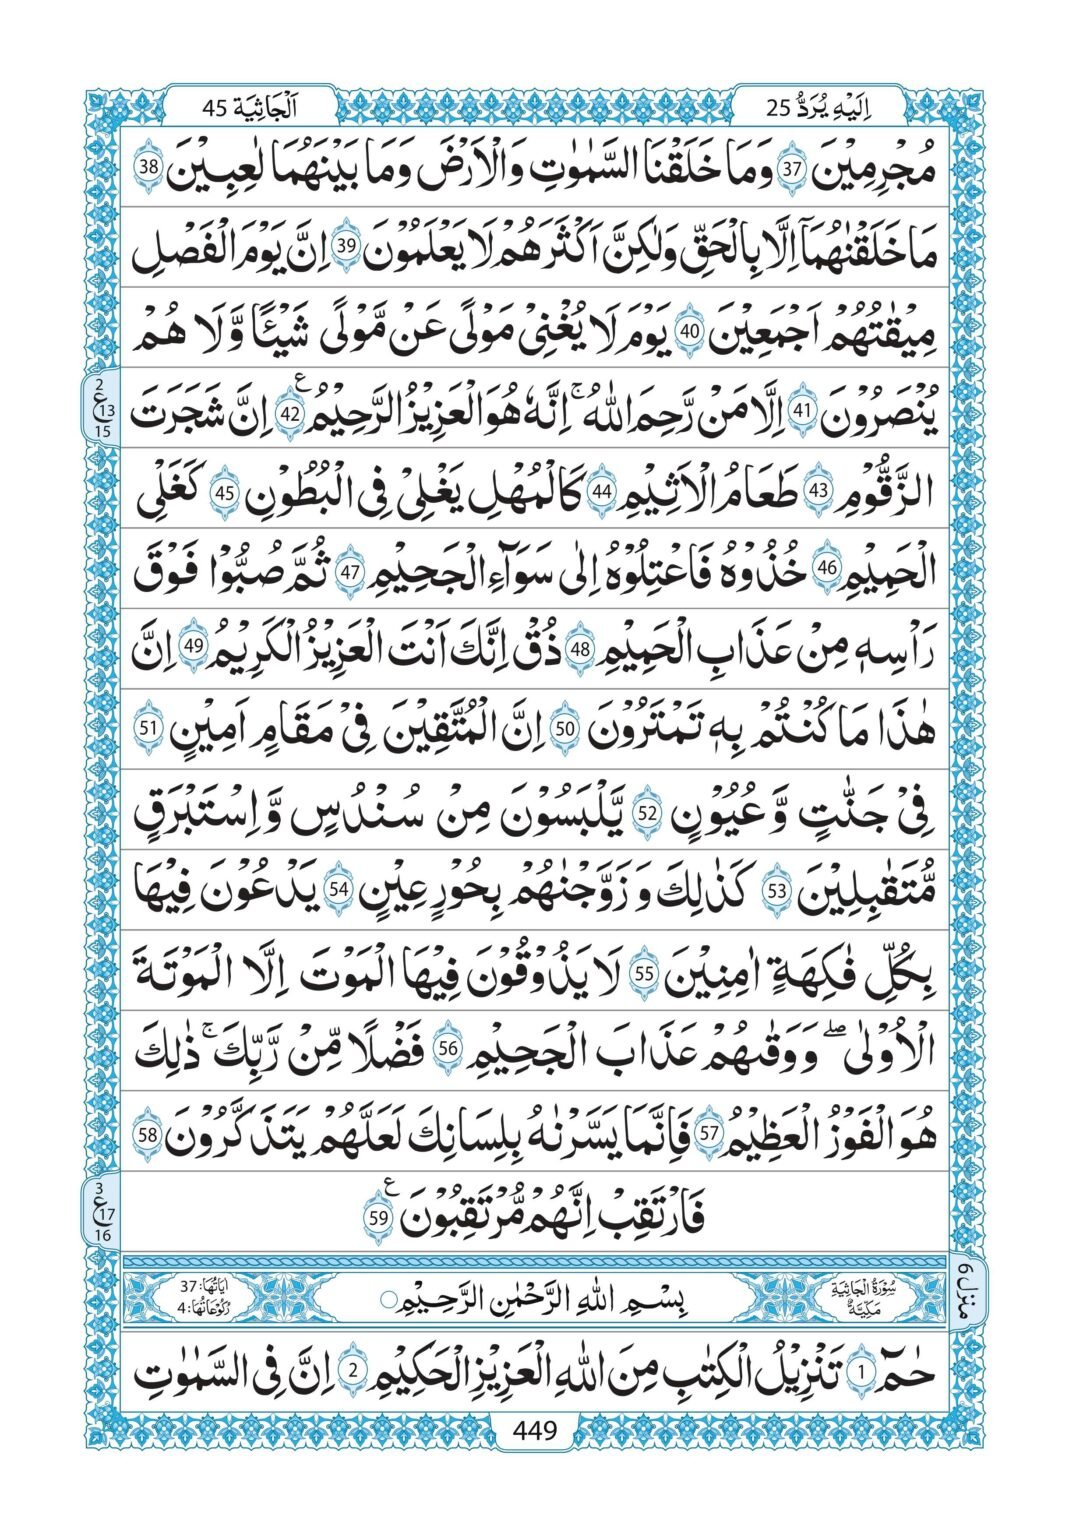 اِلَيْهِ يُرَدُّ 25
اَلْجَاثِيَة 45
مُجْرِمِيْنَ 37 وَمَا خَلَقْنَا السَّمٰوٰتِ وَالْاَرْضَ وَمَا بَيْنَهُمَا لٰعِبِيْنَ 38
مَا خَلَقْنٰهُمَاۤ اِلَّا بِالْحَقِّ وَلٰكِنَّ اَكْثَرَهُمْ لَا يَعْلَمُوْنَ 39 اِنَّ يَوْمَ الْفَصْلِ
مِيْقَاتُهُمْ اَجْمَعِيْنَ 40 يَوْمَ لَا يُغْنِيْ مَوْلًى عَنْ مَّوْلًى شَيْـًٔا وَّلَا هُمْ
يُنْصَرُوْنَ 41 اِلَّا مَنْ رَّحِمَ اللّٰهُ ۚ اِنَّهٗ هُوَ الْعَزِيْزُ الرَّحِيْمُ 42 ع اِنَّ شَجَرَتَ
2 ع 13 15
الزَّقُّوْمِ 43 طَعَامُ الْاَثِيْمِ 44 كَالْمُهْلِ يَغْلِيْ فِي الْبُطُوْنِ 45 كَغَلْيِ
الْحَمِيْمِ 46 خُذُوْهُ فَاعْتِلُوْهُ اِلٰى سَوَآءِ الْجَحِيْمِ 47 ثُمَّ صُبُّوْا فَوْقَ
رَاْسِهٖ مِنْ عَذَابِ الْحَمِيْمِ 48 ذُقْ اِنَّكَ اَنْتَ الْعَزِيْزُ الْكَرِيْمُ 49 اِنَّ
هٰذَا مَا كُنْتُمْ بِهٖ تَمْتَرُوْنَ 50 اِنَّ الْمُتَّقِيْنَ فِيْ مَقَامٍ اَمِيْنٍ 51
فِيْ جَنّٰتٍ وَّعُيُوْنٍ 52 يَّلْبَسُوْنَ مِنْ سُنْدُسٍ وَّاِسْتَبْرَقٍ
مُّتَقٰبِلِيْنَ 53 كَذٰلِكَ وَزَوَّجْنٰهُمْ بِحُوْرٍ عِيْنٍ 54 يَدْعُوْنَ فِيْهَا
بِكُلِّ فَاكِهَةٍ اٰمِنِيْنَ 55 لَا يَذُوْقُوْنَ فِيْهَا الْمَوْتَ اِلَّا الْمَوْتَةَ
الْاُوْلٰى ۖ وَوَقٰىهُمْ عَذَابَ الْجَحِيْمِ 56 فَضْلًا مِّنْ رَّبِّكَ ۚ ذٰلِكَ
هُوَ الْفَوْزُ الْعَظِيْمُ 57 فَاِنَّمَا يَسَّرْنٰهُ بِلِسَانِكَ لَعَلَّهُمْ يَتَذَكَّرُوْنَ 58
فَارْتَقِبْ اِنَّهُمْ مُّرْتَقِبُوْنَ 59 ع
3 ع 17 16
سُوْرَةُ الْجَاثِيَةِ مَكِّيَّةٌ
بِسْمِ اللّٰهِ الرَّحْمٰنِ الرَّحِيْمِ
اٰيَاتُهَا: 37 رُكُوْعَاتُهَا: 4
منزل 6
حٰمٓ 1 تَنْزِيْلُ الْكِتٰبِ مِنَ اللّٰهِ الْعَزِيْزِ الْحَكِيْمِ 2 اِنَّ فِي السَّمٰوٰتِ
449